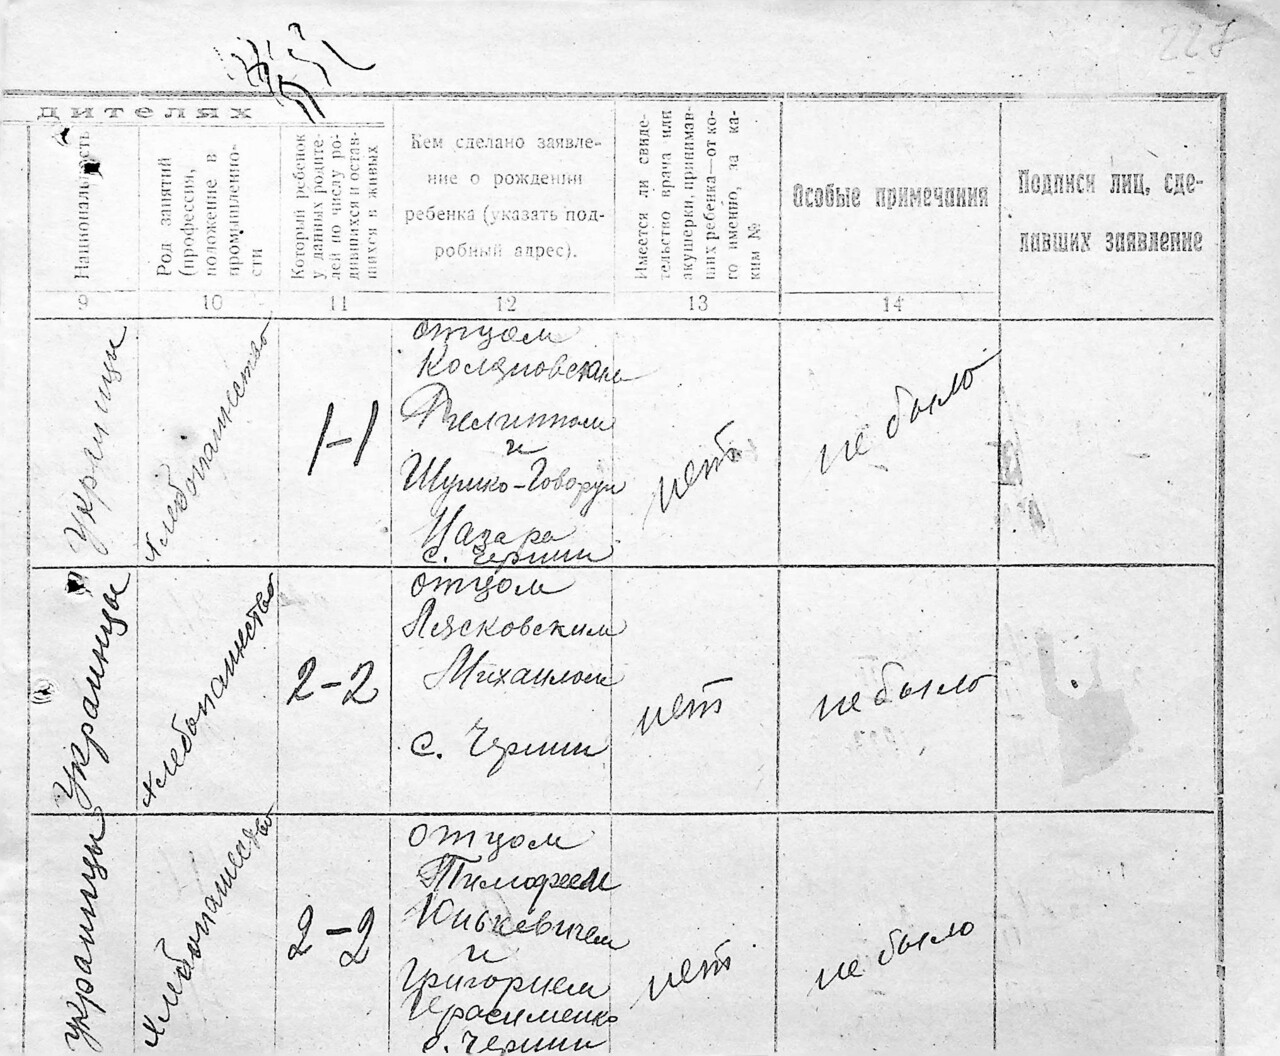 227
дителях
Национальность
Род занятий
(профессия,
положение в
промышленно-
сти
Который ребенок
у данных родите-
лей по числу ро-
дившихся и остав-
шихся в живых
Кем сделано заявле-
ние о рождении
ребенка (указать под-
робный адрес).
Имеется ли свиде-
тельство врача или
акушерки, принимав-
ших ребенка—от ко-
го именно, за ка-
ким №
Особые примечания
Подписи лиц, сде-
лавших заявление
9
10
11
12
13
14
Хлебопашество
1-1
отцом
Филиппом
и
Шушко-Говорун
Назара
с. Чермин
нет
не было
Украинцы
Хлебопашество
2-2
отцом
Лясковским
Михаилом
с. Чермин
нет
не было
украинцы
Хлебопашество
2-2
отцом
Тимофеем
Юнькевичем
и
Григорием
Герасименко
с. Чермин
нет
не было